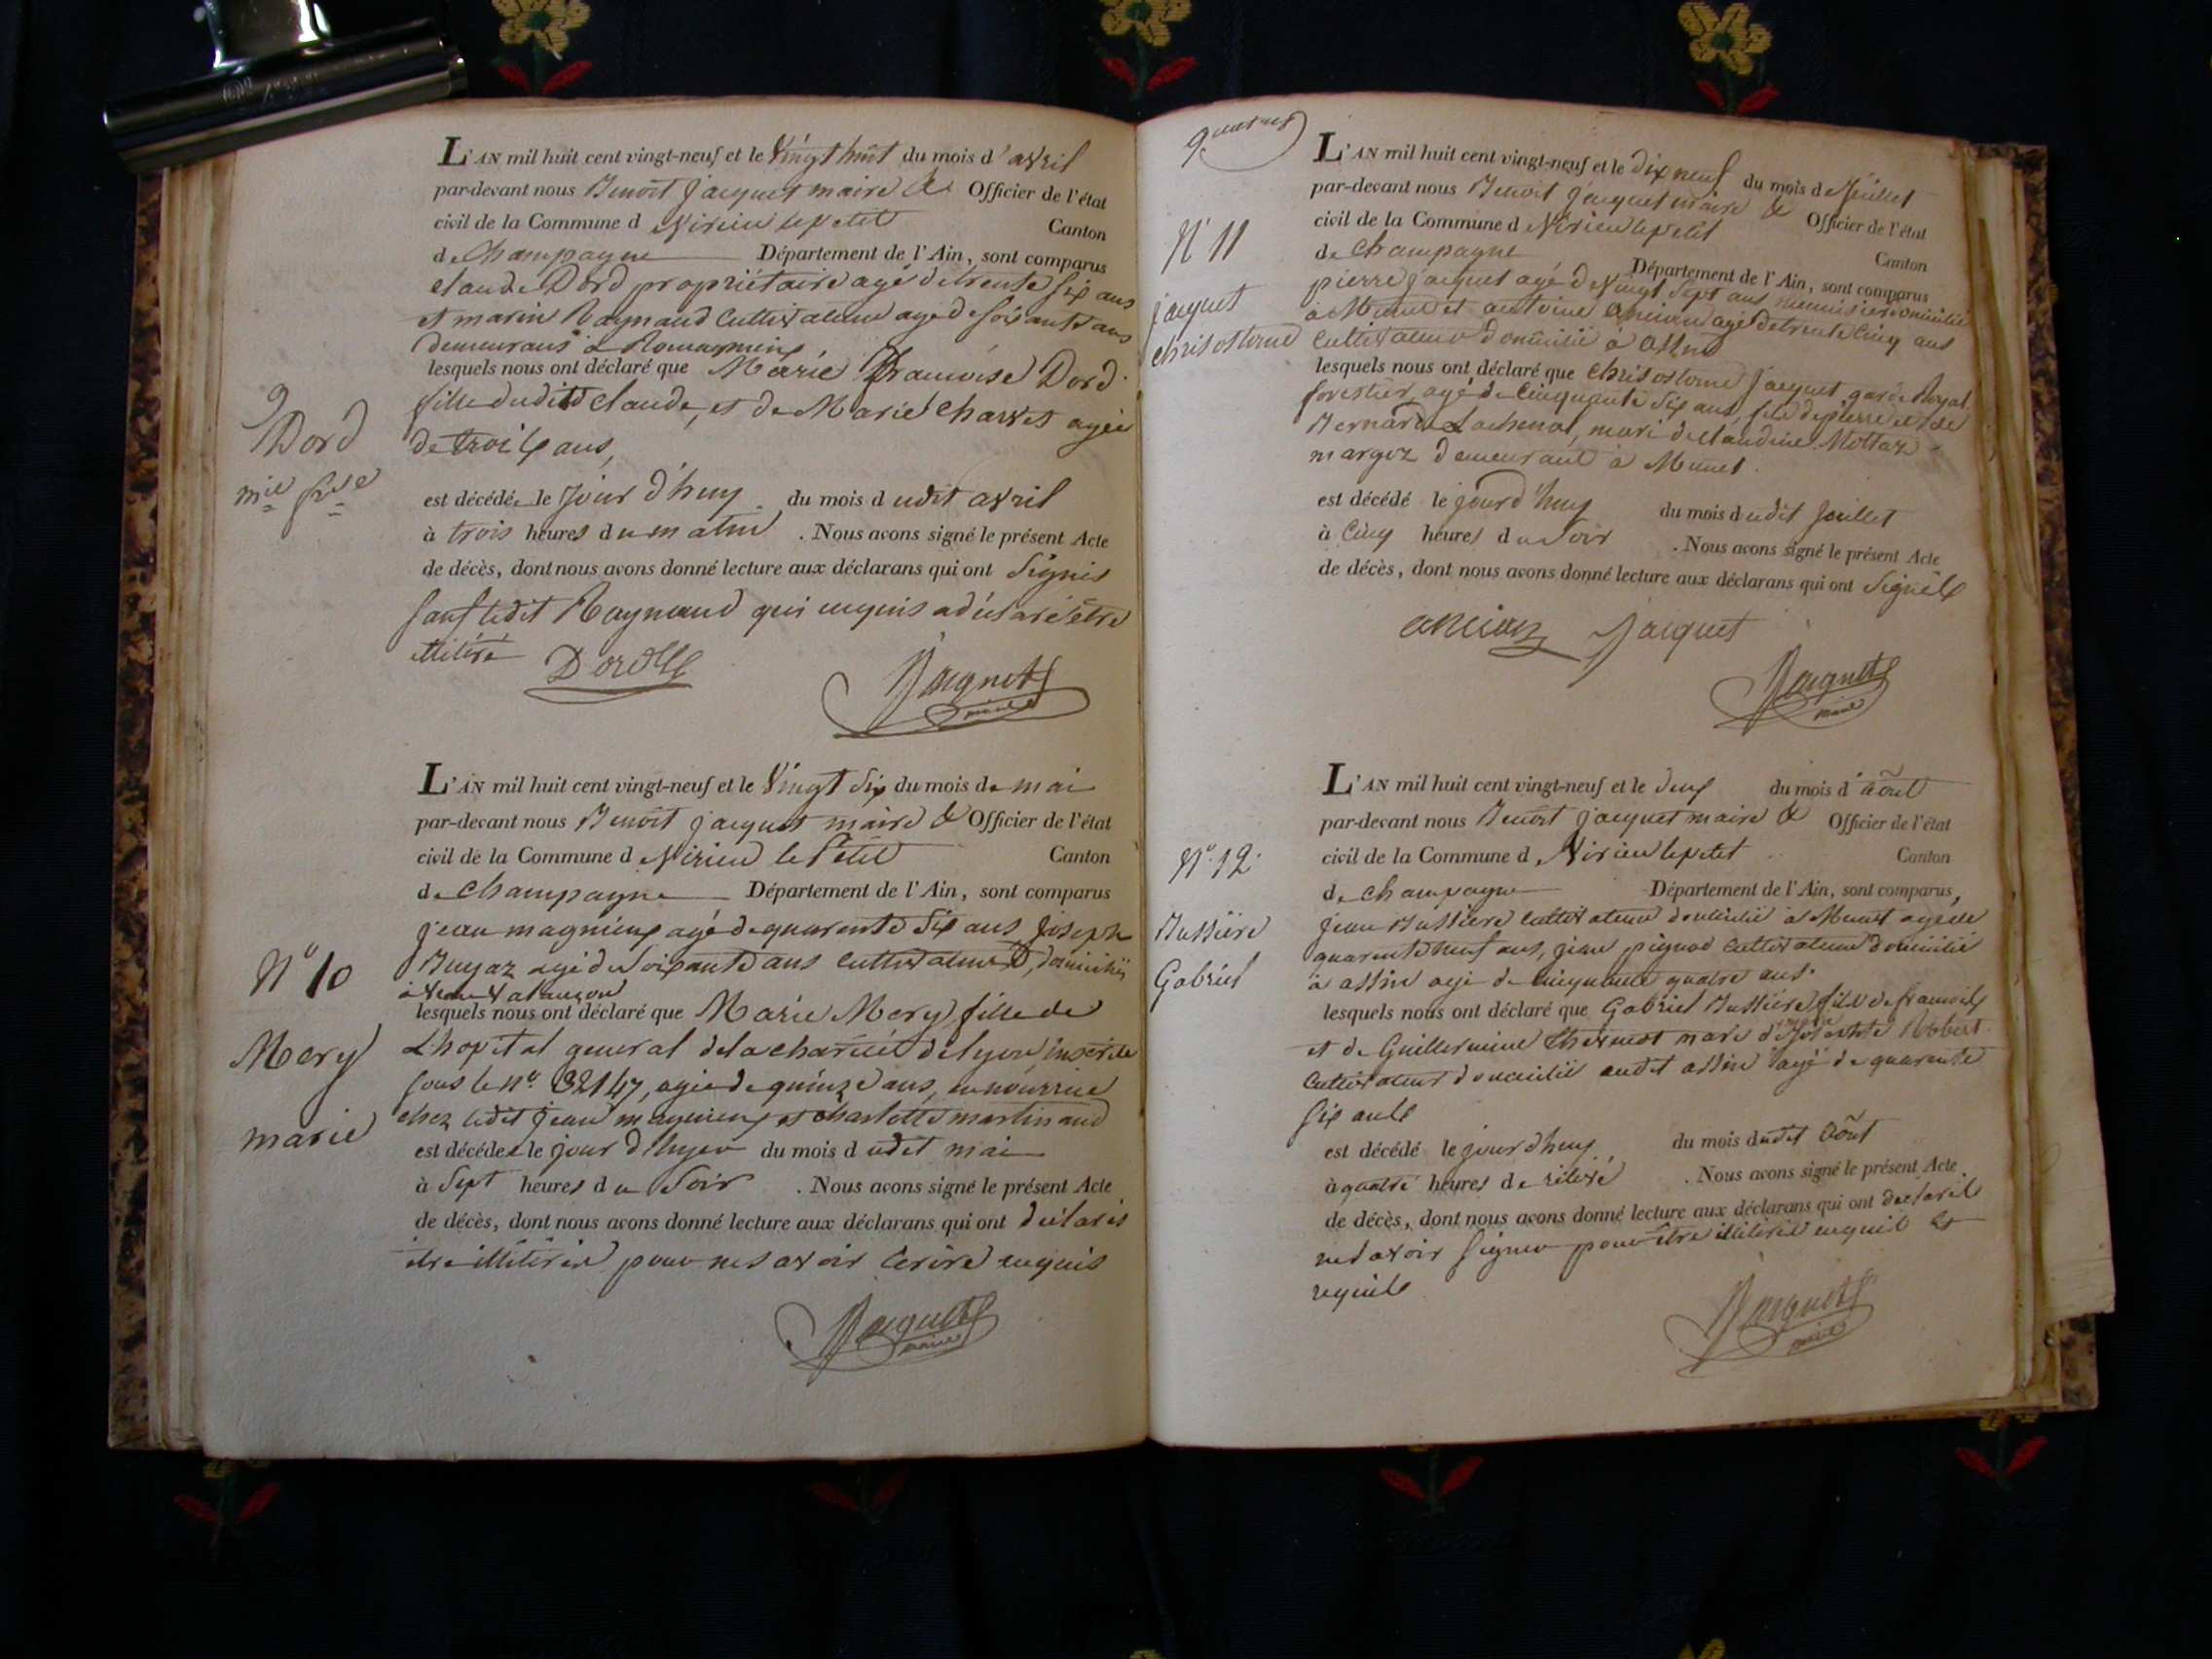 9
Dord
mie fse
L'AN mil huit cent vingt-neuf et le Vingt huit du mois d'avril
par-devant nous Benoit jacquet maire & Officier de l'état
civil de la Commune de Virieu le petit Canton
de Champagne Département de l'Ain, sont comparus
claude Dord propriétaire agé de trente six ans
et marin Raymand Cultivateur agé de soixante ans
demeurans a
lesquels nous ont déclaré que Marie françoise Dord
fille dudit claude, et de Marie Charvet agée
de trois ans,
est décédée le Jour d'huy du mois dudit avril
à trois heures du matin . Nous avons signé le présent Acte
de décès, dont nous avons donné lecture aux déclarans qui ont Signés
sauf ledit Raymand qui enquis a déclaré être
illitéré
Dord
Jacquet
maire
N° 10
Mery
marie
L'AN mil huit cent vingt-neuf et le Vingt Six du mois de mai
par-devant nous Benoit jacquet maire & Officier de l'état
civil de la Commune de Virieu le Petit Canton
de Champagne Département de l'Ain, sont comparus
jean magnieux agé de quarente Six ans Joseph
Bugaz agé de Soixante ans Cultivateurs, domiciliés
à
lesquels nous ont déclaré que Marie Mery fille de
Lhopital general de la charité de lyon inscrite
sous le n° 32147, agée de quinze ans, en nourrice
chez ledit jean magnieux et charlotte martinand
est décédée le jour d'hyer du mois dudit mai
à Sept heures du Soir . Nous avons signé le présent Acte
de décès, dont nous avons donné lecture aux déclarans qui ont déclarés
être illitérés pour ne savoir écrire enquis
Jacquet
maire
N° 11
jacquet
chrisostome
L'AN mil huit cent vingt-neuf et le dix neuf du mois de Juillet
par-devant nous Benoit jacquet maire & Officier de l'état
civil de la Commune de Virieu le petit Canton
de Champagne Département de l'Ain, sont comparus
pierre jacquet agé de Vingt Sept ans menuisier domicilié
à Munet et antoine Ancian agé de trente Cinq ans
Cultivateur domicilié à Assin
lesquels nous ont déclaré que Chrisostome Jacquet garde Royal
forestier, agé de Cinquante Six ans, fils de pierre et de
Bernarde Lachenal, mari de claudine Mottaz
margoz demeurant à Munet.
est décédé le jour d'huy du mois dudit Juillet
à Cinq heures du Soir . Nous avons signé le présent Acte
de décès, dont nous avons donné lecture aux déclarans qui ont Signés
ancian Jacquet
Jacquet
maire
N° 12.
Bussiere
Gabriel
L'AN mil huit cent vingt-neuf et le deux du mois d'août
par-devant nous Benoit jacquet maire & Officier de l'état
civil de la Commune de Virieu le petit Canton
de Champagne Département de l'Ain, sont comparus,
jean Bussiere Cultivateur domicilié à Munet agé de
quarente neuf ans, jean pignod Cultivateur domicilié
à assin agé de cinquante quatre ans.
lesquels nous ont déclaré que Gabriel Bussiére fils de francois
et de Guillermine mari de Robert
Cultivateur domicilié audit assin agé de quarente
six ans
est décédé le jour d'huy du mois dudit Août
à quatre heures de relevé . Nous avons signé le présent Acte
de décès, dont nous avons donné lecture aux déclarans qui ont declarés
ne savoir signer pour être illitéré enquis et
requis
Jacquet
maire